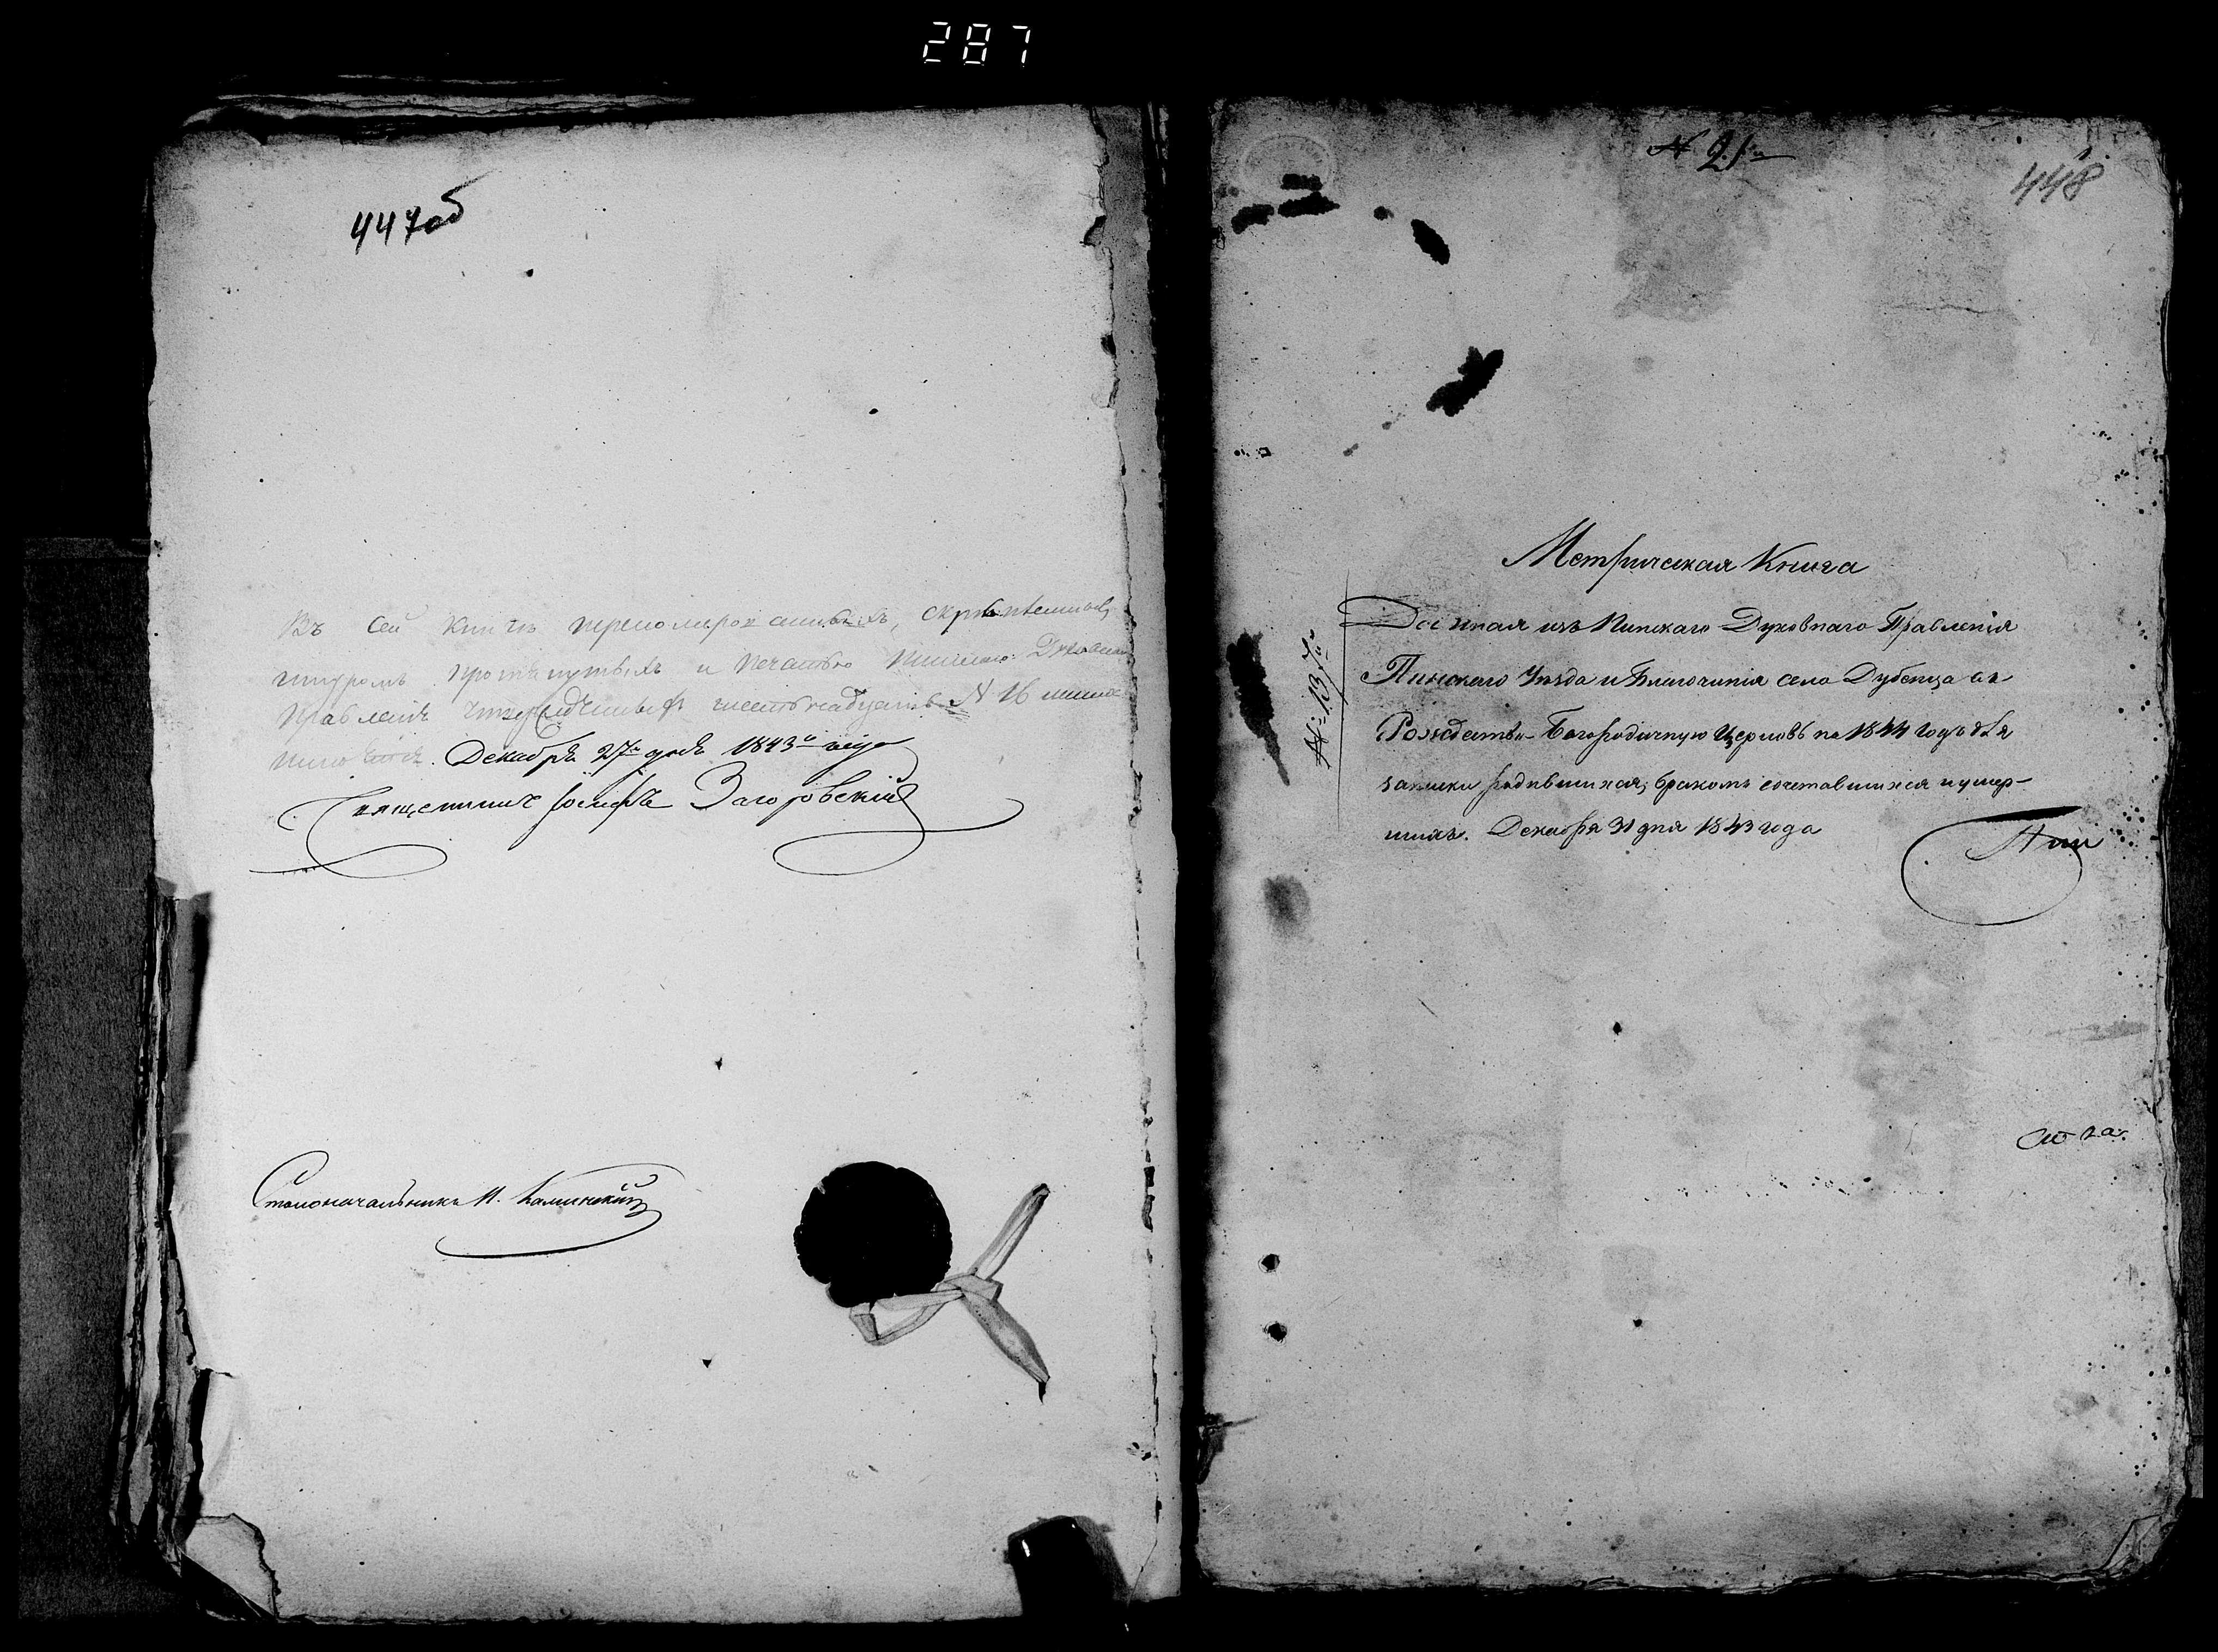 287
447об
Въ сей книгѣ перенумерованныхъ, скрѣпленныхъ,
шнуромъ протянутыхъ и печатью Пинскаго Духовнаго
Правленія утвержденныхъ шестьнадцать № 16 листовъ
Декабря 27го дня 1843го года
Священникъ Іосифъ Загоровскій
Столоначальникъ И. Калинскій
№ 21й
448
№ 137й
Метрическая Книга
Данная изъ Пинскаго Духовнаго Правленія
Пинскаго Уѣзда и Благочинія села Дубенца въ
Рождество-Богородичную Церковь на 1844 годъ для
записки родившихся, бракомъ сочетавшихся и умер-
шихъ. Декабря 31 дня 1843 года